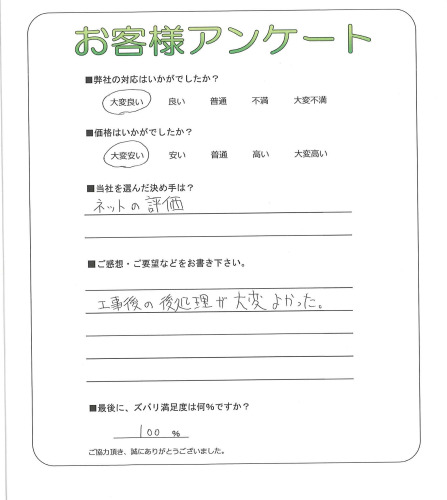 お客様アンケート
■弊社の対応はいかがでしたか?
大変良い 良い 普通 不満 大変不満
■価格はいかがでしたか?
大変安い 安い 普通 高い 大変高い
■当社を選んだ決め手は?
ネットの評価
■ご感想・ご要望などをお書き下さい。
工事後の後処理が大変よかった。
■最後に、ズバリ満足度は何%ですか?
100 %
ご協力頂き、誠にありがとうございました。